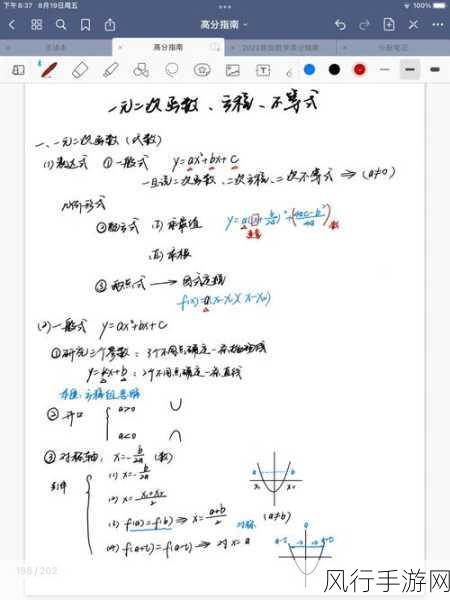 下午8:37 8月19日周五
100%
高分指南
高分指南
一元二次函数、方程、不等式
一、一元二次函数（代数）
(1) 表达式 ① 一般式 y=ax²+bx+c
一旦说二次函数、二次方程、二次不等式 ⇒ (a≠0)
几何形式
②配方式 (I) 求最值 y=a(x+b/2a)²+(4ac-b²/4a)
(II) 求根
③ 两点式 → 因式定理
f(x)=a(x-x₁)(x-x₂)
(2) 一般式 y=ax²+bx+c
①研究三个参数：3个不同点确定一条抛物线
y=kx+b：2个不同点确定一条直线
本质：方程组思路
② 开口 { a>0 ∪
a<0 ∩
③ 对称轴: x=-b/2a (数)
(1) x=-b/2a
(2) x=x₁+x₂/2
(3) f(a)=f(b) ⇒ x=a+b/2 (a≠b)
(4) f(a+t)=f(a-t) → 对 x=a
a b
x₁ x₂
对称
a
a-t a+t
198 / 202
风行手游网